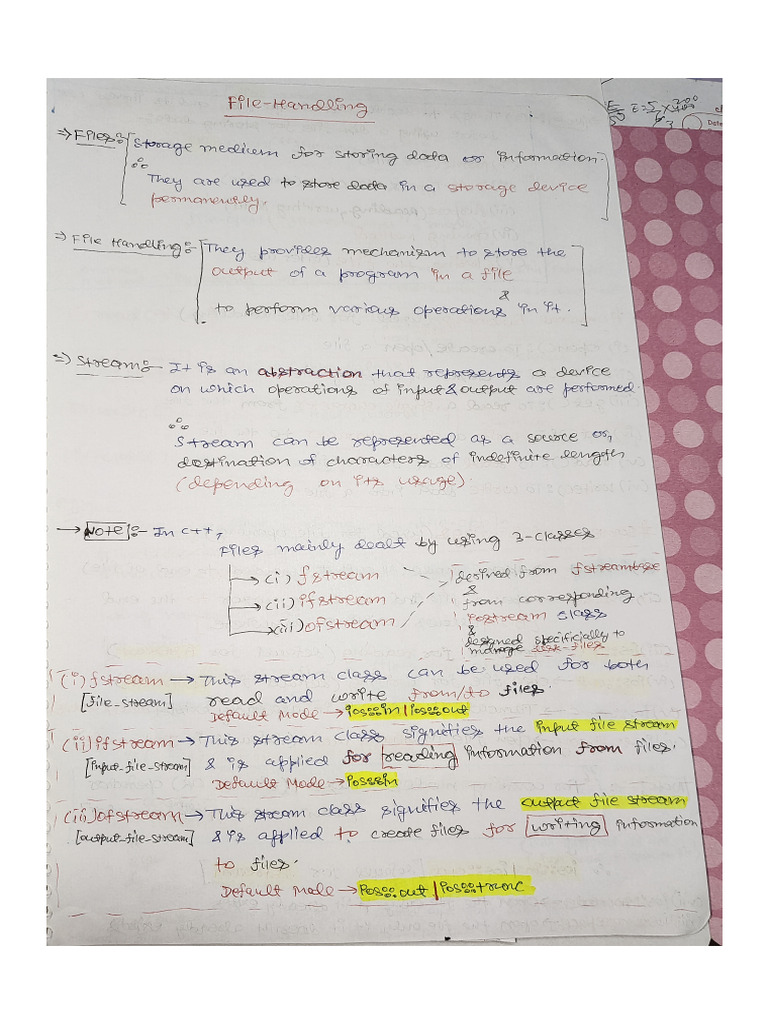 File-Handling
⇒ Files:- [Storage medium for storing data or information.
∴ They are used to store data in a storage device
permanently.]
⇒ File Handling:- [They provides mechanism to store the
output of a program in a file
&
to perform various operations in it.]
⇒ Stream:- It is an abstraction that represents a device
on which operations of input & output are performed.
∴
Stream can be represented as a source or,
destination of characters of indefinite length
(depending on its usage).
→ Note:- In C++,
Files mainly dealt by using 3-classes
→ (i) fstream
→ (ii) ifstream
→ (iii) ofstream
derived from fstreambase
&
from corresponding
iostream class
&
designed specificially to
manage disk-files
(i) fstream → This stream class can be used for both
[file-stream] read and write from/to files.
Default Mode → ios::in | ios::out
(ii) ifstream → This stream class signifies the input file stream
[input-file-stream] & is applied for reading information from files.
Default Mode → ios::in
(iii) ofstream → This stream class signifies the output file stream
[output-file-stream] & is applied to create files for writing information
to files.
Default Mode → ios::out | ios::trunc
Date